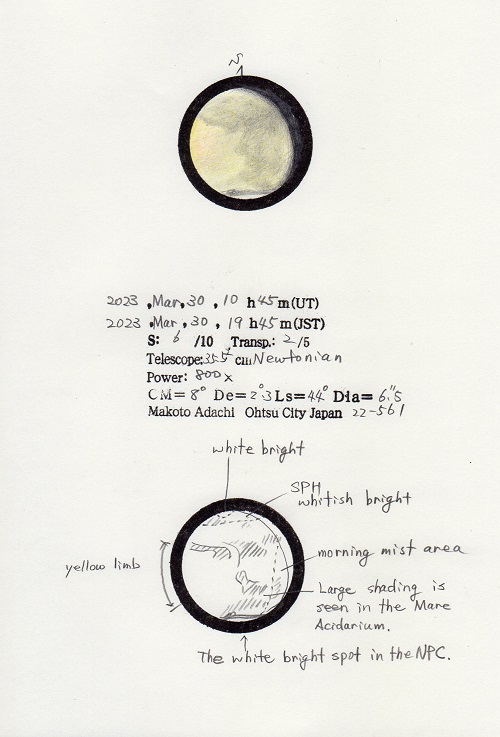 N
2023 ,Mar,30 , 10 h45m(UT)
2023 ,Mar ,30 , 19 h45m(JST)
S: 6 /10 Transp.: 2/5
Telescope:35.5 cm Newtonian
Power: 800 x
CM= 8° De= 2°.3 Ls= 44° Dia= 6".5
Makoto Adachi Ohtsu City Japan 22-561
white bright
SPH
whitish bright
morning mist area
yellow limb
Large shading is
seen in the Mare
Acidarium.
The white bright spot in the NPC.